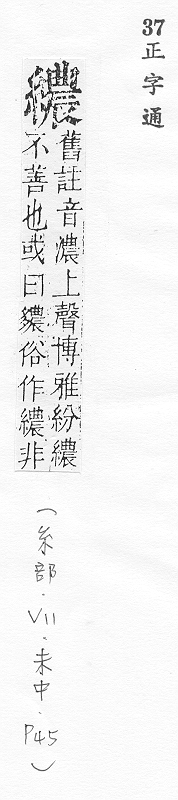 37正字通
繷
舊註音濃上聲博雅紛繷
不善也或曰𧴂俗作繷非
(糸部.VII.未中.P45)